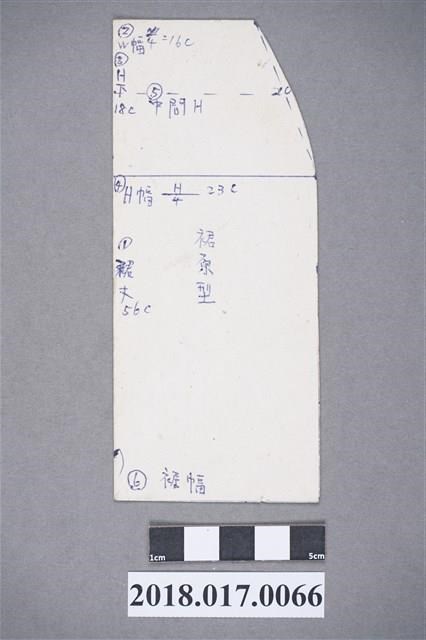 ②
W幅 W/4 = 16c
③
H
下 — ⑤ — — — 2c
18c 中間H
④ H幅 H/4 23c
①
裙
丈
56c
裙
原
型
⑥ 裙幅
1cm 5cm
2018.017.0066